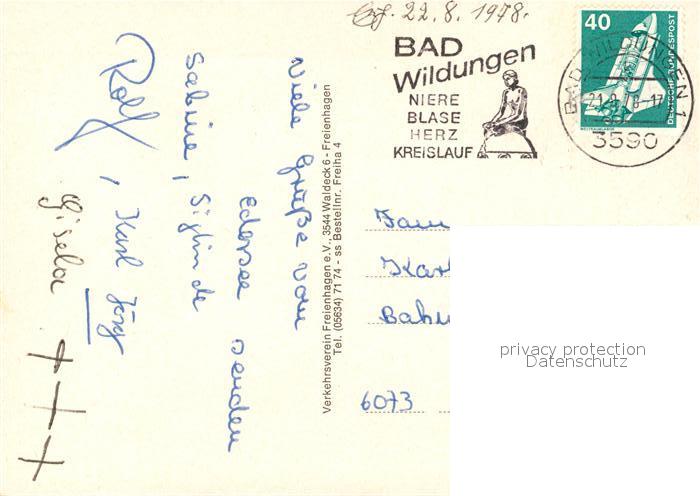 Erh. 22.8.1978.
BAD
Wildungen
NIERE
BLASE
HERZ
KREISLAUF
40
DEUTSCHE BUNDESPOST
WELTRAUMLABOR
BAD WILDUNGEN 1
21.8.78-17
3590
Viele Grüße vom
Edersee senden
Sabine, Siglinde
Rolf, Karl Jörg
Gisela + + +
Verkehrsverein Freienhagen e.V., 3544 Waldeck 6 - Freienhagen
Tel. (05634) 71 74 - ss Bestellnr. Freiha 4
Fam
Karl
Bahn
6073
privacy protection
Datenschutz